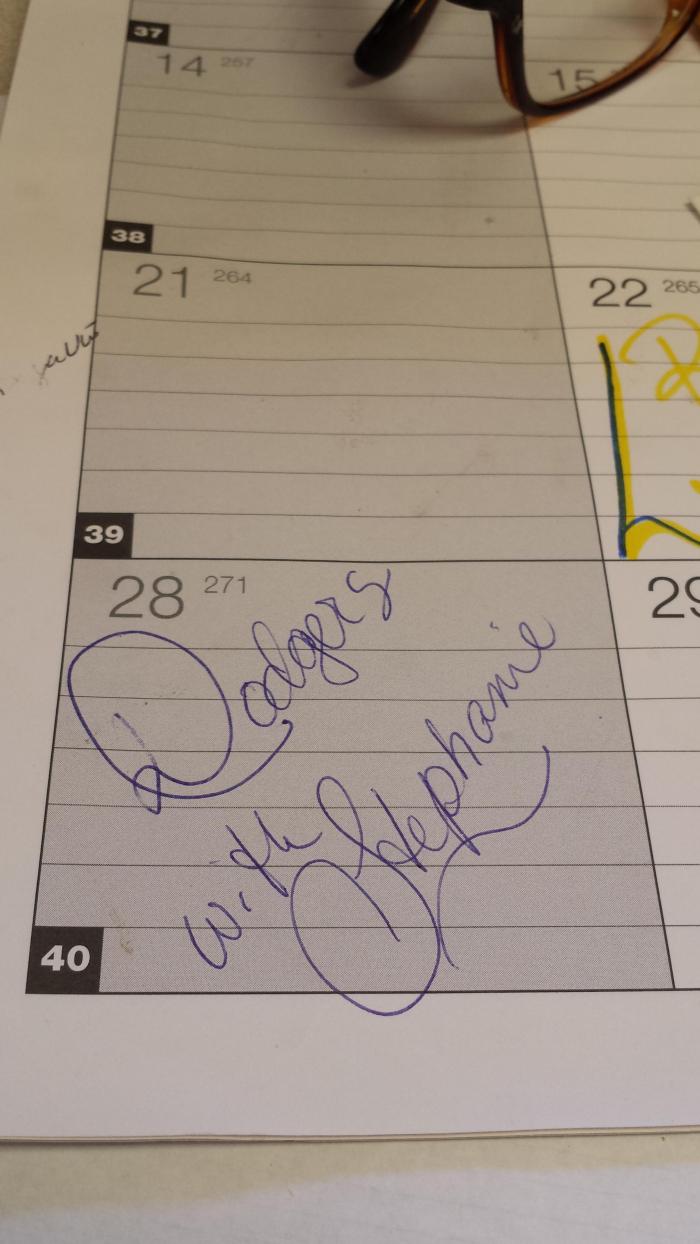 37
14 257
15
38
21 264
22 265
39
28 271
29
Dodgers
with Stephanie
40